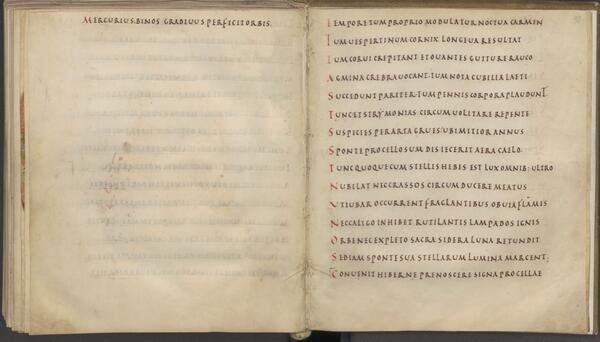 MERCURIUS.BINOS GRADIUUS PERFICIT ORBIS.
TEMPORE TUM PROPRIO MODULATUR NOCTUA CARMEN
TUM UESPERTINUM CORNIX LONGEUA RESULTAT
TUM CORUI CREPITANT ET OUANTES GUTTURE RAUCO
AGMINA CREBRA UOCANT. TUM NOTA CUBILIA LAETI
SUCCEDUNT PARITER. TUM PENNIS CORPORA PLAUDUNT.
TUNC ET STRYMONIAS CIRCUM UOLITARE REPENTE
SUSPICIES PER ARTA GRUES UBI MITIOR ANNUS
SPONTE PROCELLOSUM DISIECERIT AERA CAELO.
TUNC QUOQUE CUM STELLIS HEBIS EST LUX OMNIB; ULTRO
NUBILAT NEC CRASSOS CIRCUM DUCERE MEATUS
UT IUBAR OCCURRENT FRAGLANTIBUS OBUIA FLĀMIS
NEC CALIGO INHIBET RUTILANTIS LAMPADOS IGNIS
ORBE NEC EXPLETO SACRA SIDERA LUNA RETUNDIT
SED IAM SPONTE SUA STELLARUM LUMINA MARCENT;
CONUENIT HIBERNE PRENOSCERE SIGNA PROCILLAE